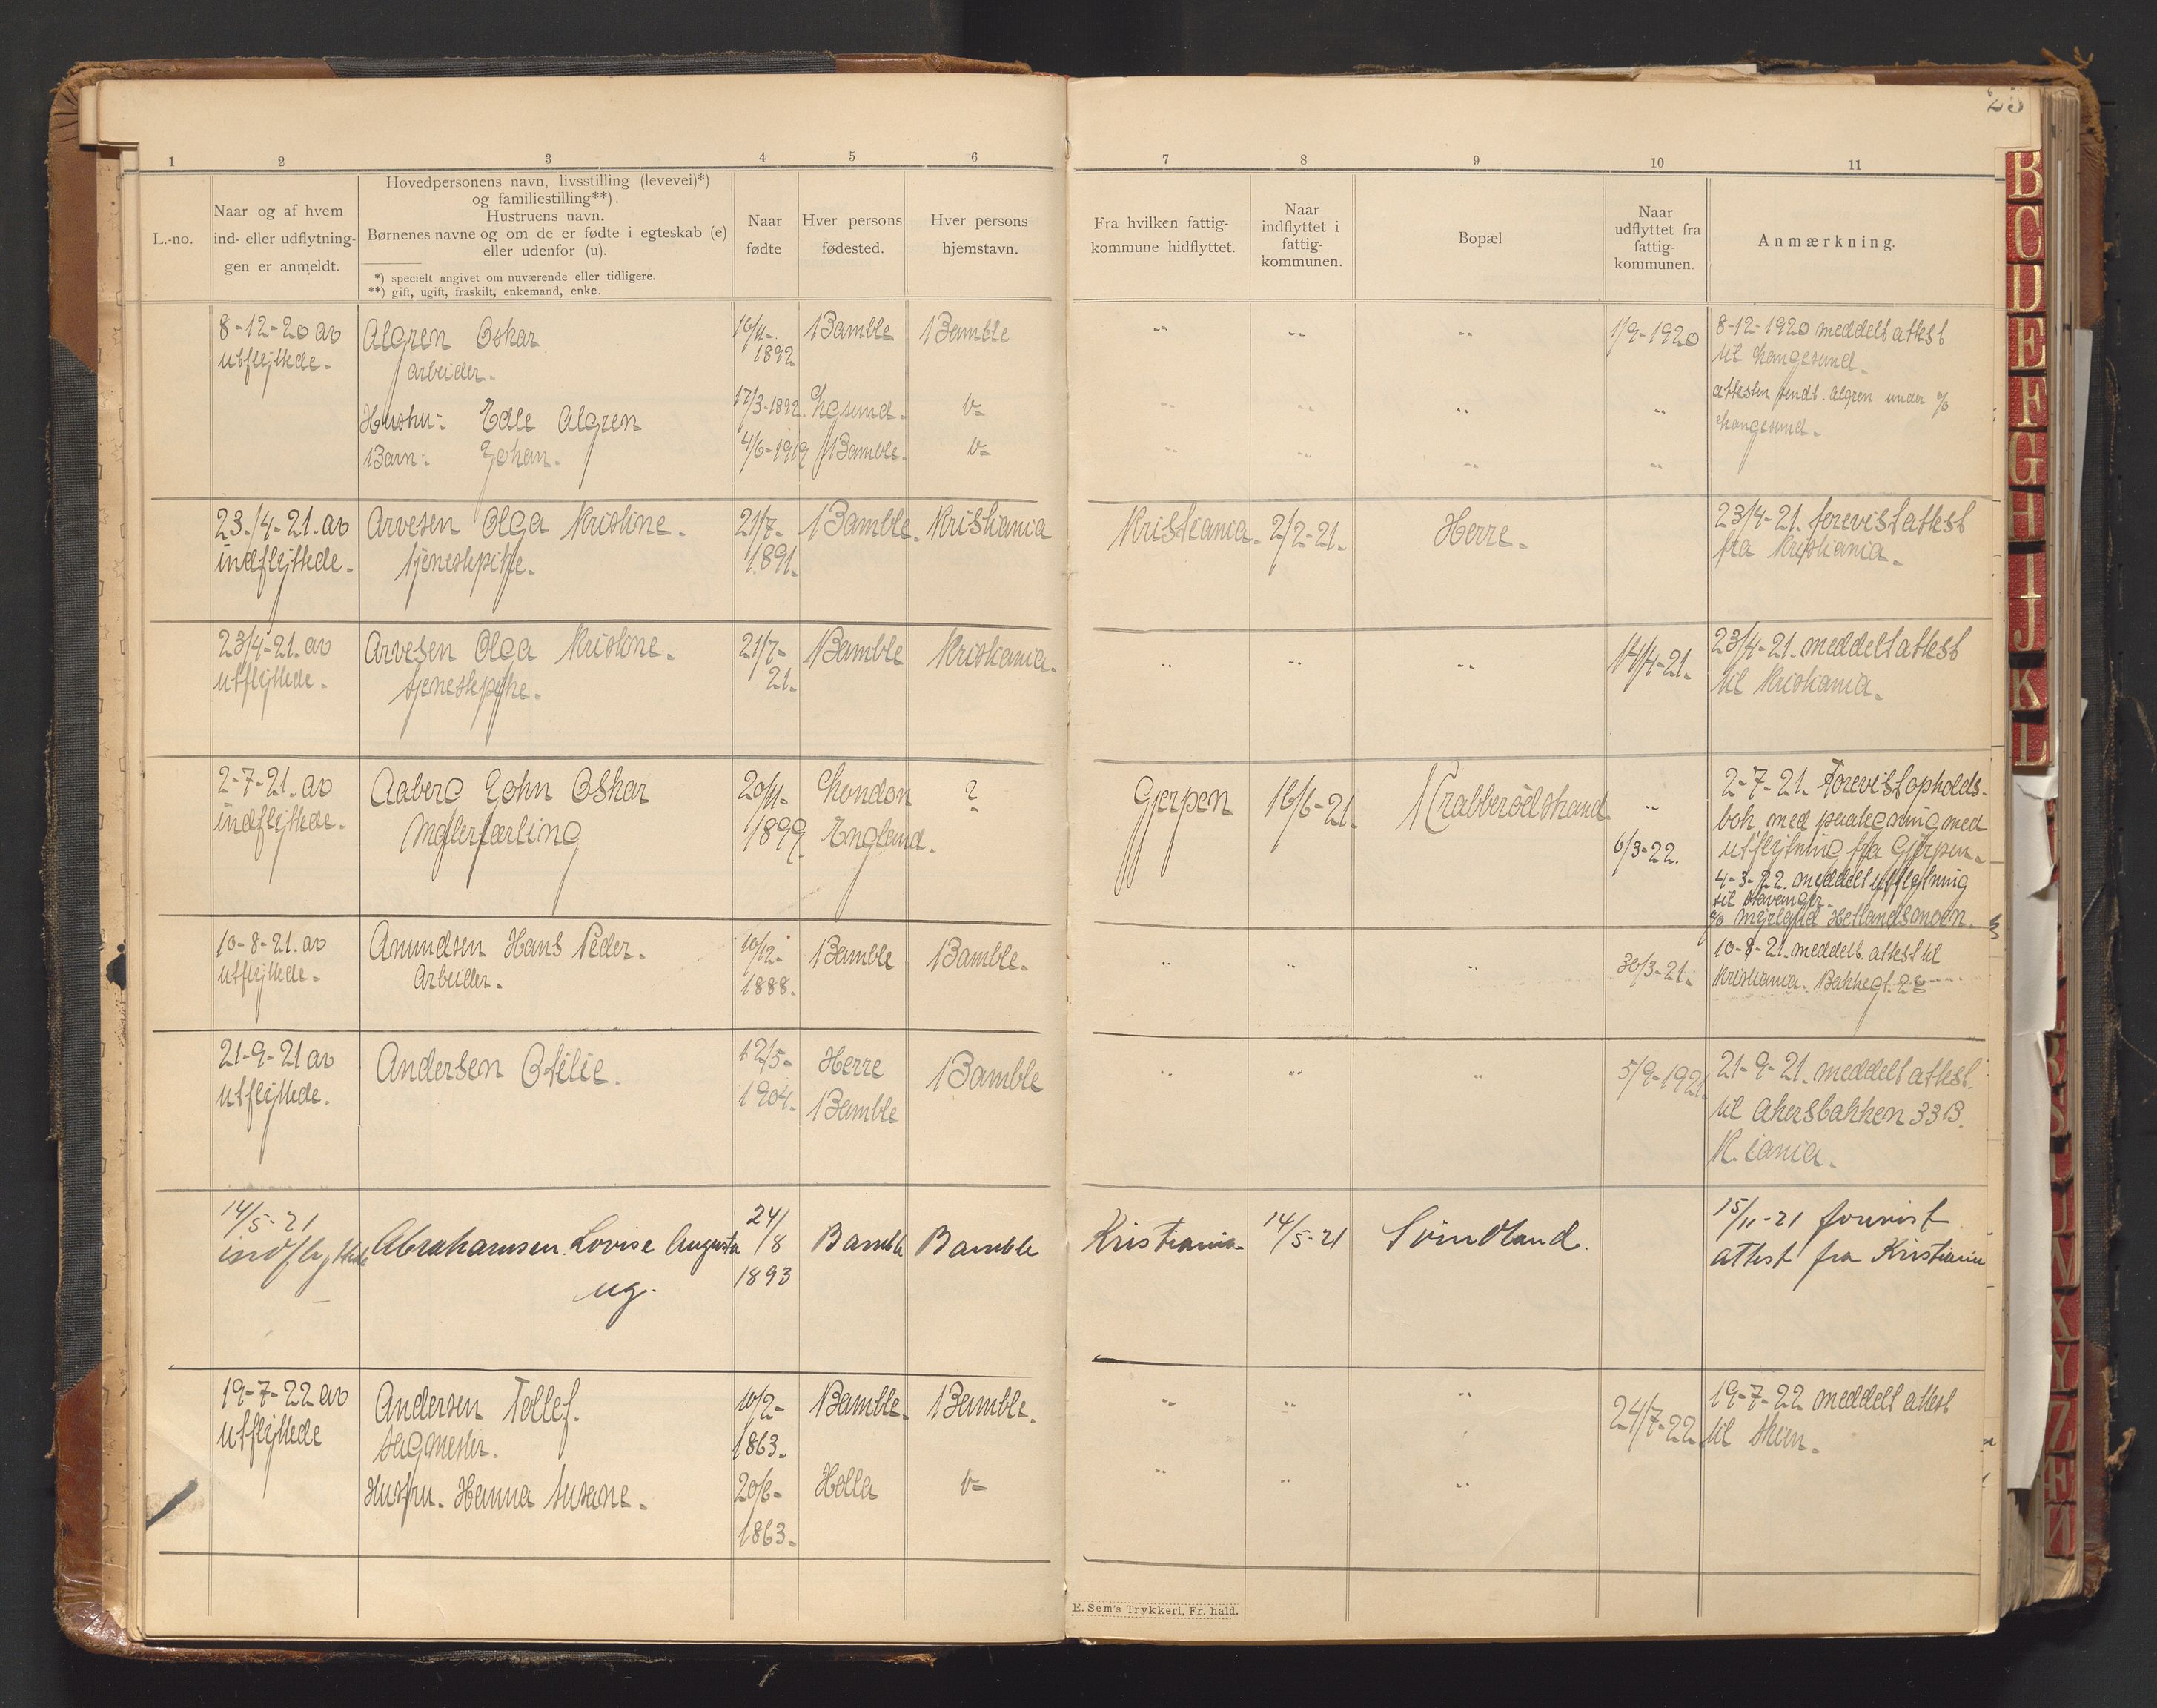 25
1 2 3 4 5 6 7 8 9 10 11
L.-no.
Naar og af hvem
ind- eller udflytnin-
gen er anmeldt.
Hovedpersonens navn, livsstilling (levevei)*)
og familiestilling**).
Hustruens navn.
Børnenes navne og om de er fødte i egteskab (e)
eller udenfor (u).
*) specielt angivet om nuværende eller tidligere.
**) gift, ugift, fraskilt, enkemand, enke.
Naar
fødte
Hver persons
fødested.
Hver persons
hjemstavn.
Fra hvilken fattig-
kommune hidflyttet.
Naar
indflyttet i
fattig-
kommunen.
Bopæl
Naar
udflyttet fra
fattig-
kommunen.
Anmærkning.
8-12-20 av
utflyttede.
Algren Oskar
arbeider.
1892
Bamble
Bamble
1/9-1920
8-12-1920 meddelt attest
til Haugesund.
attesten sendt Algren under %
Haugesund.
Hustru: Edle Algren
17/3-1892.
Barn: Johan.
4/6-1919
Bamble.
23/4-21. av
indflyttede.
Arvesen Olga Kristine.
tjenestepike.
21/7-
1891.
Bamble.
Kristiania
Kristiania.
2/2-21.
Herre.
23/4-21. forevist attest
fra Kristiania.
23/4-21. av
utflyttede.
Arvesen Olga Kristine.
tjenestepike.
21/7-
21.
Bamble
Kristiania.
14/4-21.
23/4-21. meddelt attest
til Kristiania.
2-7-21. av
indflyttede.
Aaberg John Oskar
Møllerlærling
1899.
London
England.
?
Gjerpen
16/6-21.
Krabberødstrand
6/3-22.
2-7-21. Forevist opholds-
bok med paategning med
utflytning fra Gjerpen.
4-3-22. meddelt utflytning
til Stavanger.
Hetlandsmoen.
10-8-21. av
utflyttede.
Amundsen Hans Peder.
Arbeider.
10/12-
1888.
Bamble
Bamble.
30/3-21.
10-8-21. meddelt attest til
Kristiania. Bakkegt. 28
21-9-21 av
utflyttede.
Andersen Otilie.
12/5-
1904.
Herre
Bamble
Bamble
5/9-1921.
21-9-21. meddelt attest.
til Akersbakken 33 B.
K.iania.
14/5-21
indflyttede
Abrahamsen Lovise Augusta
ug.
24/8
1893
Bamble
Bamble
Kristiania
14/5-21
Svindland.
15/11-21 forevist
attest fra Kristiania
19-7-22 av
utflyttede
Andersen Tollef.
sagmester.
10/2-
1863.
Bamble.
Bamble.
24/7-22.
19-7-22 meddelt attest
til Skien.
Hustru. Hanna Susane.
20/6-
1863.
Holla
E. Sem's Trykkeri, Fr. hald.
B
C
D
E
F
G
H
I
J
K
L
X
Y
Z
Æ